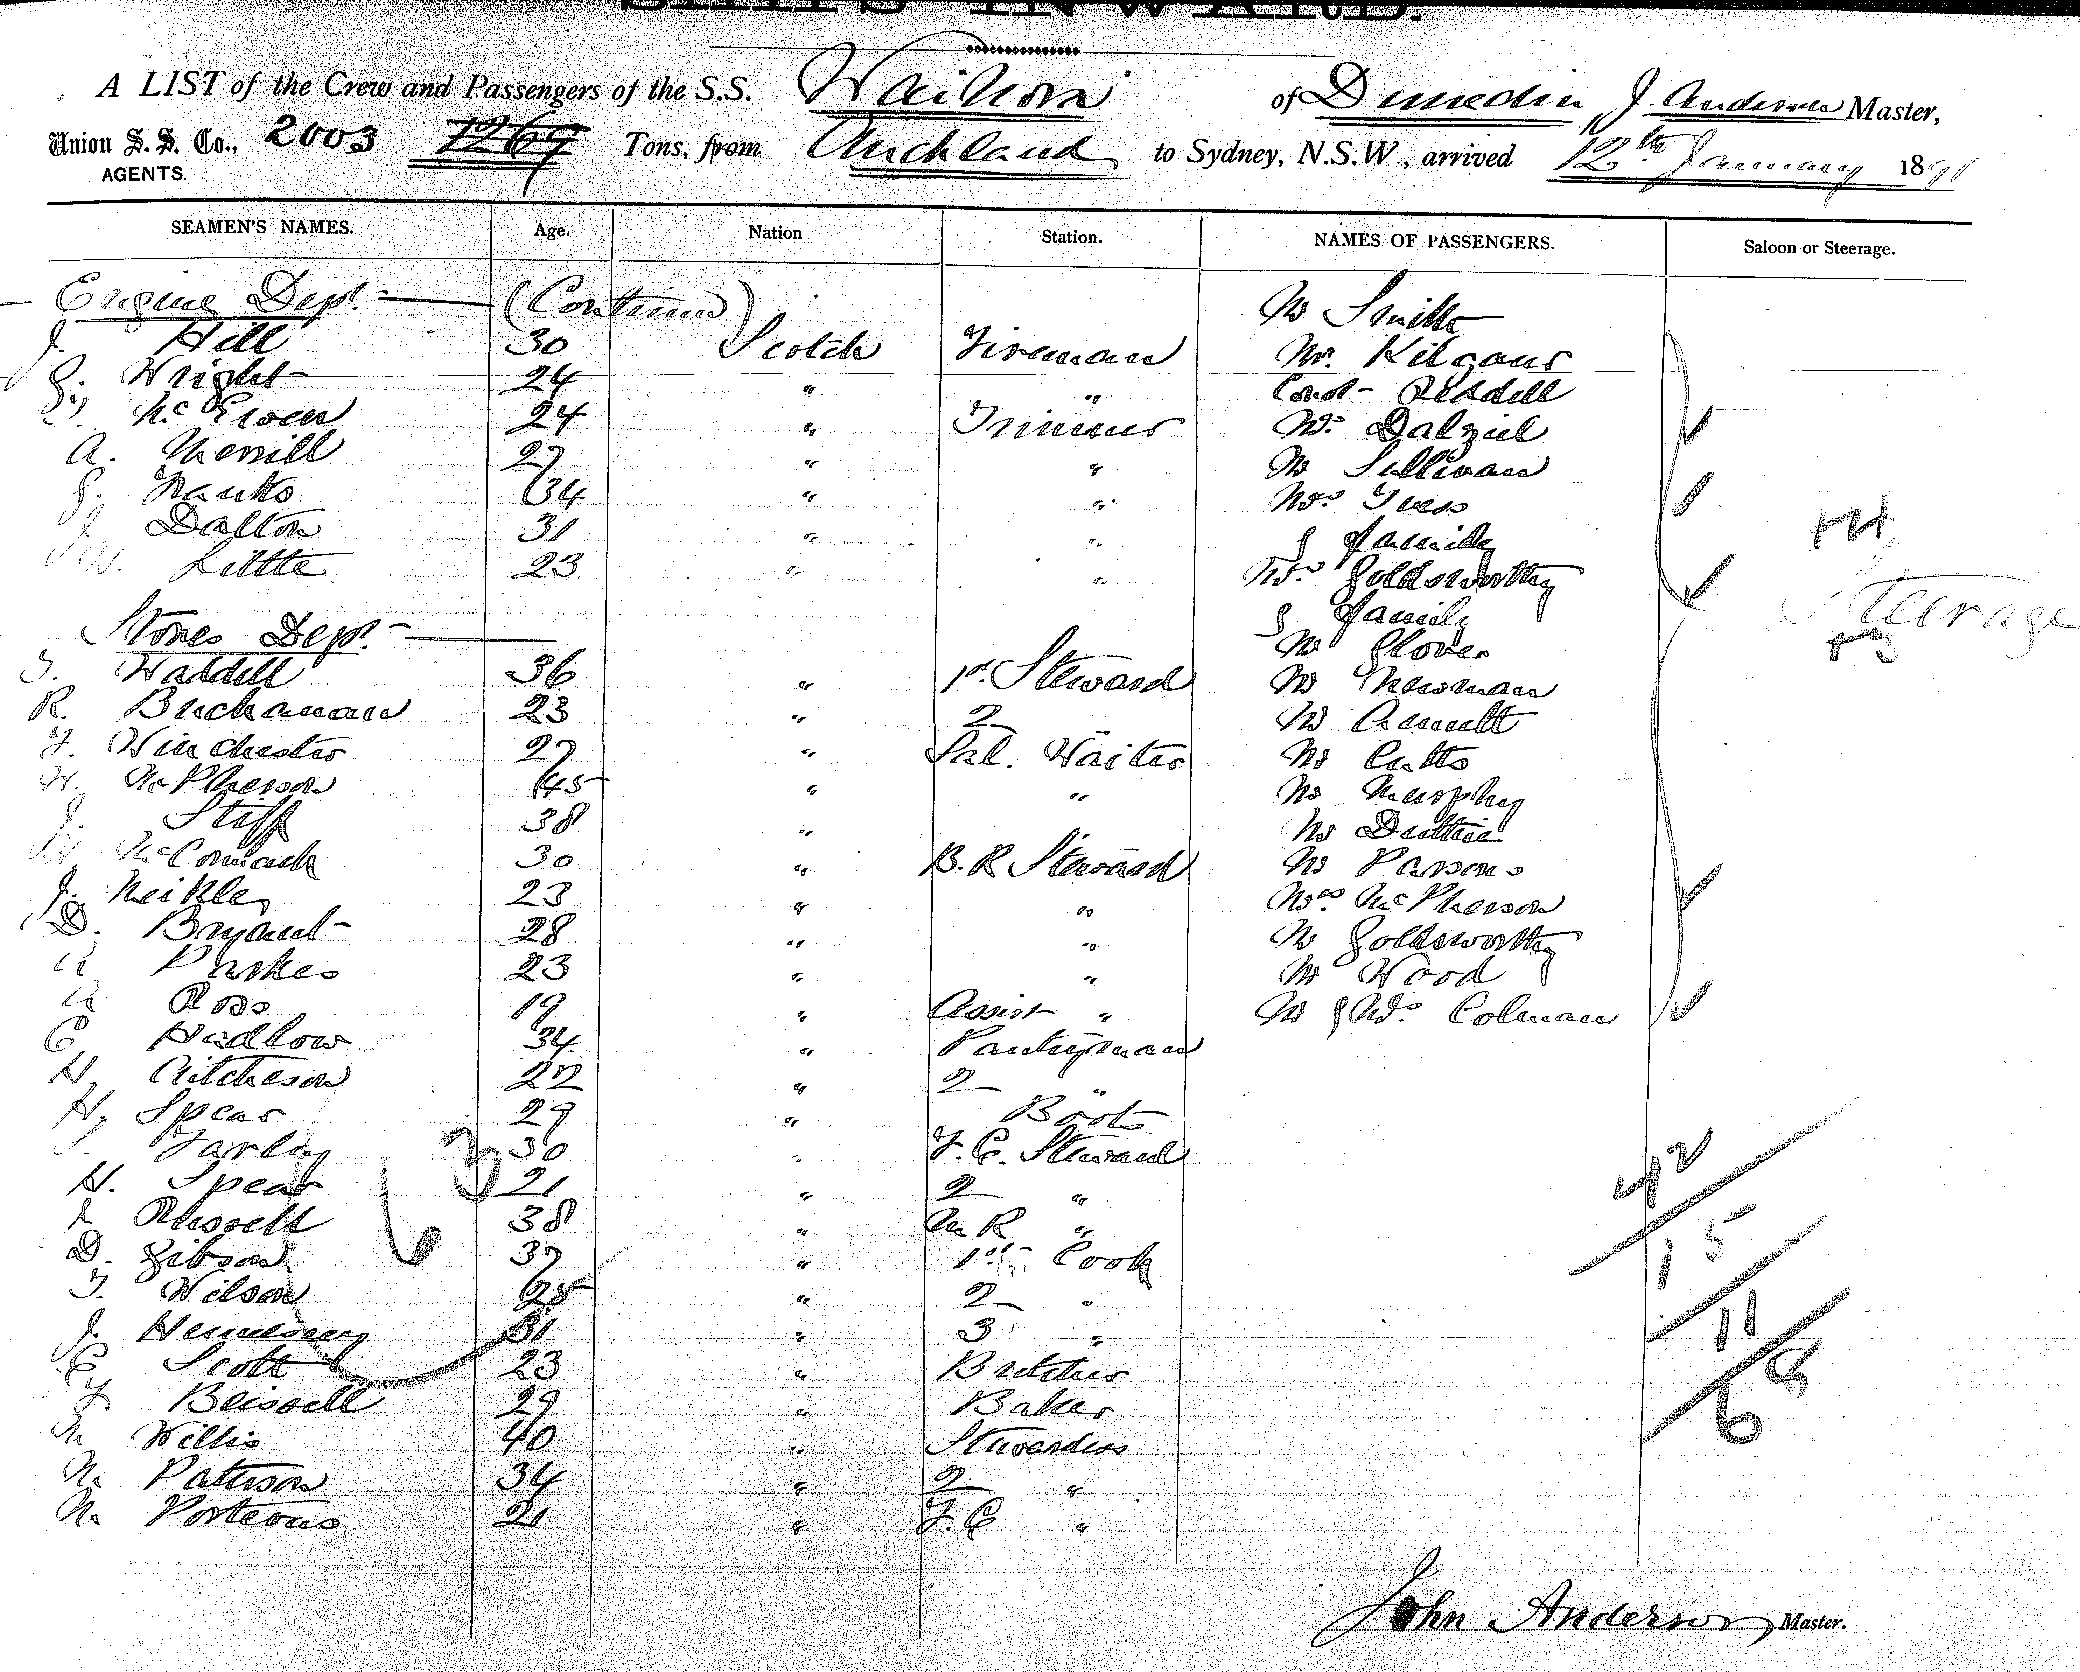 A LIST of the Crew and Passengers of the S.S. Waihora of Dunedin J. Anderson Master,
Union S. S. Co., 2003 1269 Tons, from Auckland to Sydney, N.S.W., arrived 12th January 1891
AGENTS.
SEAMEN'S NAMES. Age. Nation Station. NAMES OF PASSENGERS. Saloon or Steerage.
Engine Dept. (Continued) Mr Smith
J. Hill 30 Scotch Fireman Mr. Kilgour
G. Wright 24 " " Const- Riddell
McEwen 24 " Trimmer Mrs Dalziel
A. Merrill 27 " " Mr Sullivan
G. Hanks 34 " " Mrs Ivess
J. Dalton 31 " " & family
W. Little 23 " " Mrs Goldsworthy
& family
Steerage
Stores Dept. Mr Glover
T. Waddell 36 " 1st Steward Mr Newman
R. Buchanan 23 " 2 " Mr
F. Winchester 27 " Sal. Waiter Mr Cutts
H. McPherson 45 " " Mr Murphy
J. Stiff 38 " Mr Duthie
McCormack 30 " B. R Steward Mr Parsons
J. Meikle 23 " " Mrs McPherson
D. Bryant 28 " " Mr Goldsworthy
Parkes 23 " " Mr Wood
Ross 19 " Assist " Mr & Mrs Colman
C Hudlow 34 " Pantryman
H. Aitcheson 22 " 2 "
H. Spear 29 " Boots
Farley 30 " F. C. Steward
H. Spear 21 " 2 "
Russell 38 " M R "
D. Gibson 37 " 1st Cook
T. Wilson 25 " 2 "
J. Hennessy 31 " 3 "
C Scott 23 " Butcher
F Blissell 29 " Baker
M Willis 40 " Stewardess
M. Pattison 34 " 2 "
M. Porteous 21 " F. C "
42
15
11
68
John Anderson Master.